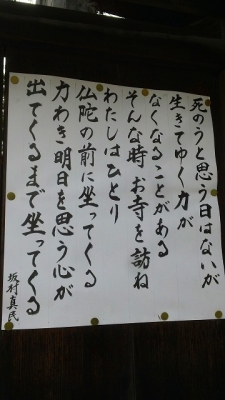 死のうと思う日はないが
生きてゆく力が
なくなることがある
そんな時お寺を訪ね
わたしはひとり
仏陀の前に坐ってくる
力わき明日を思う心が
出てくるまで坐ってくる
坂村真民